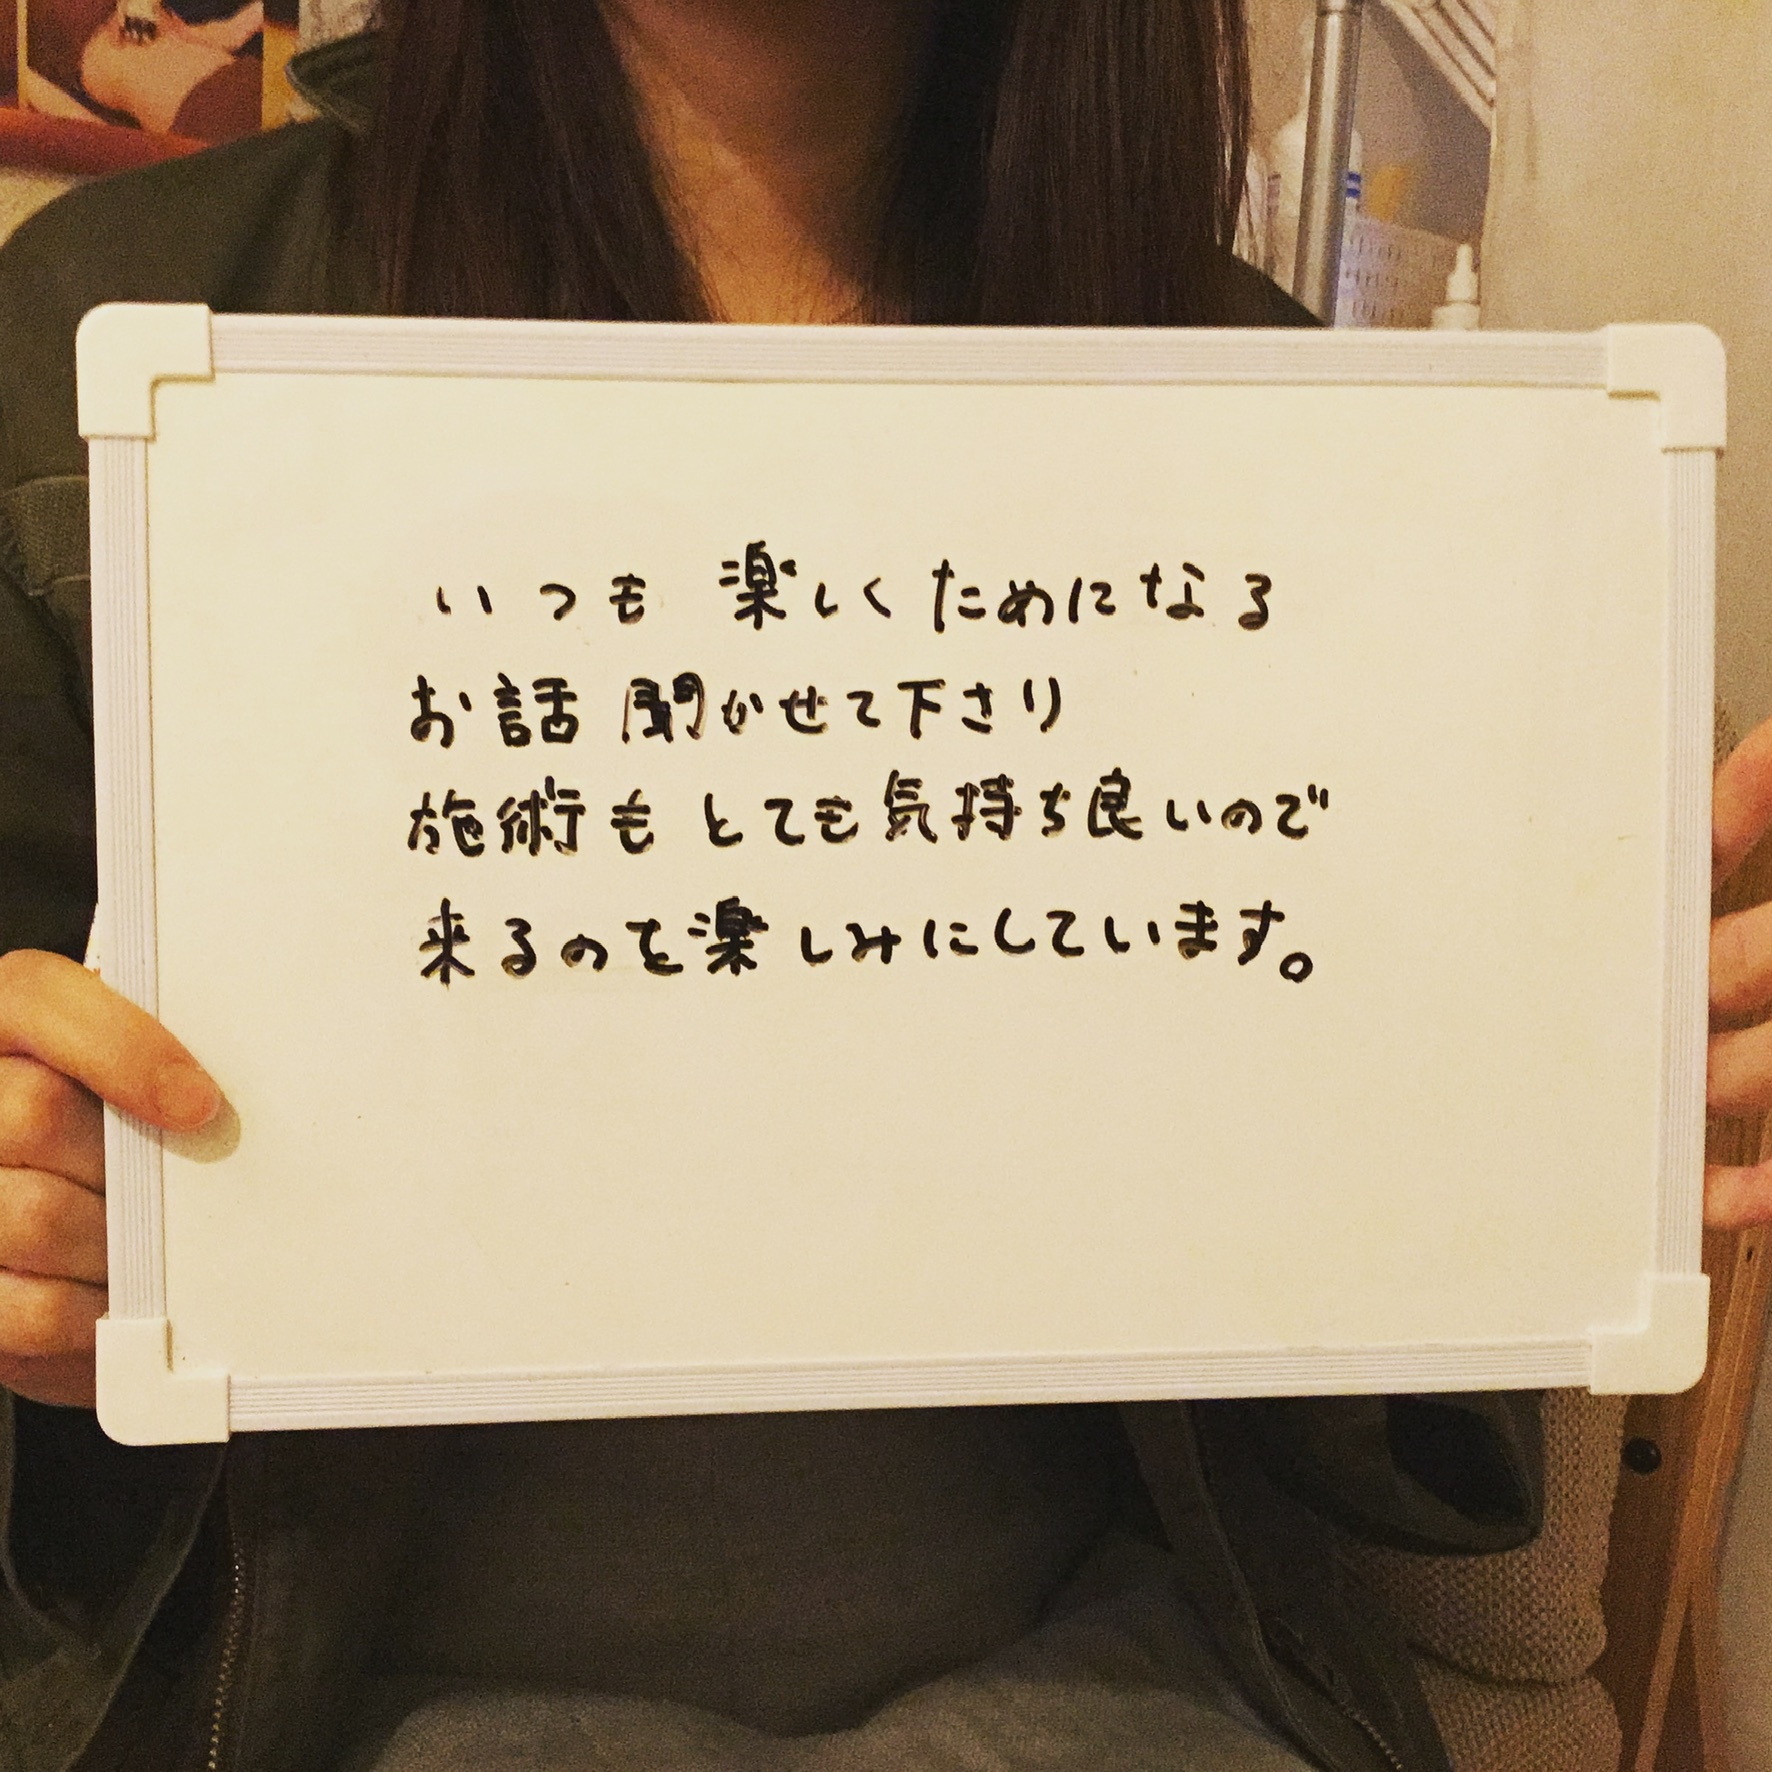 いつも楽しくためになる
お話聞かせて下さり
施術もとても気持ち良いので
来るのを楽しみにしています。